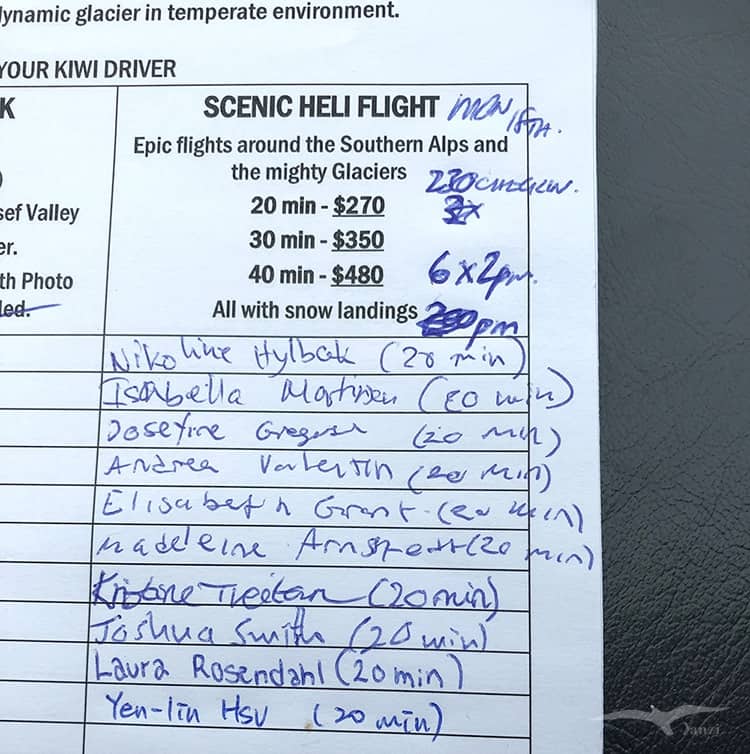 dynamic glacier in temperate environment.
YOUR KIWI DRIVER
K
SCENIC HELI FLIGHT MON 18TH.
Epic flights around the Southern Alps and
the mighty Glaciers
20 min - $270
30 min - $350
40 min - $480
All with snow landings pm
sef Valley
er.
th Photo
led.
6x2pm
Nikoline Hylbak (20 min)
Isabella (20 min)
Josefine (20 min)
Andrea Valentin (20 min)
Elisabeth Grant (20 min)
Madeleine (20 min)
(20 min)
Joshua Smith (20 min)
Laura Rosendahl (20 min)
Yen-lin Hsu (20 min)
Yanzi